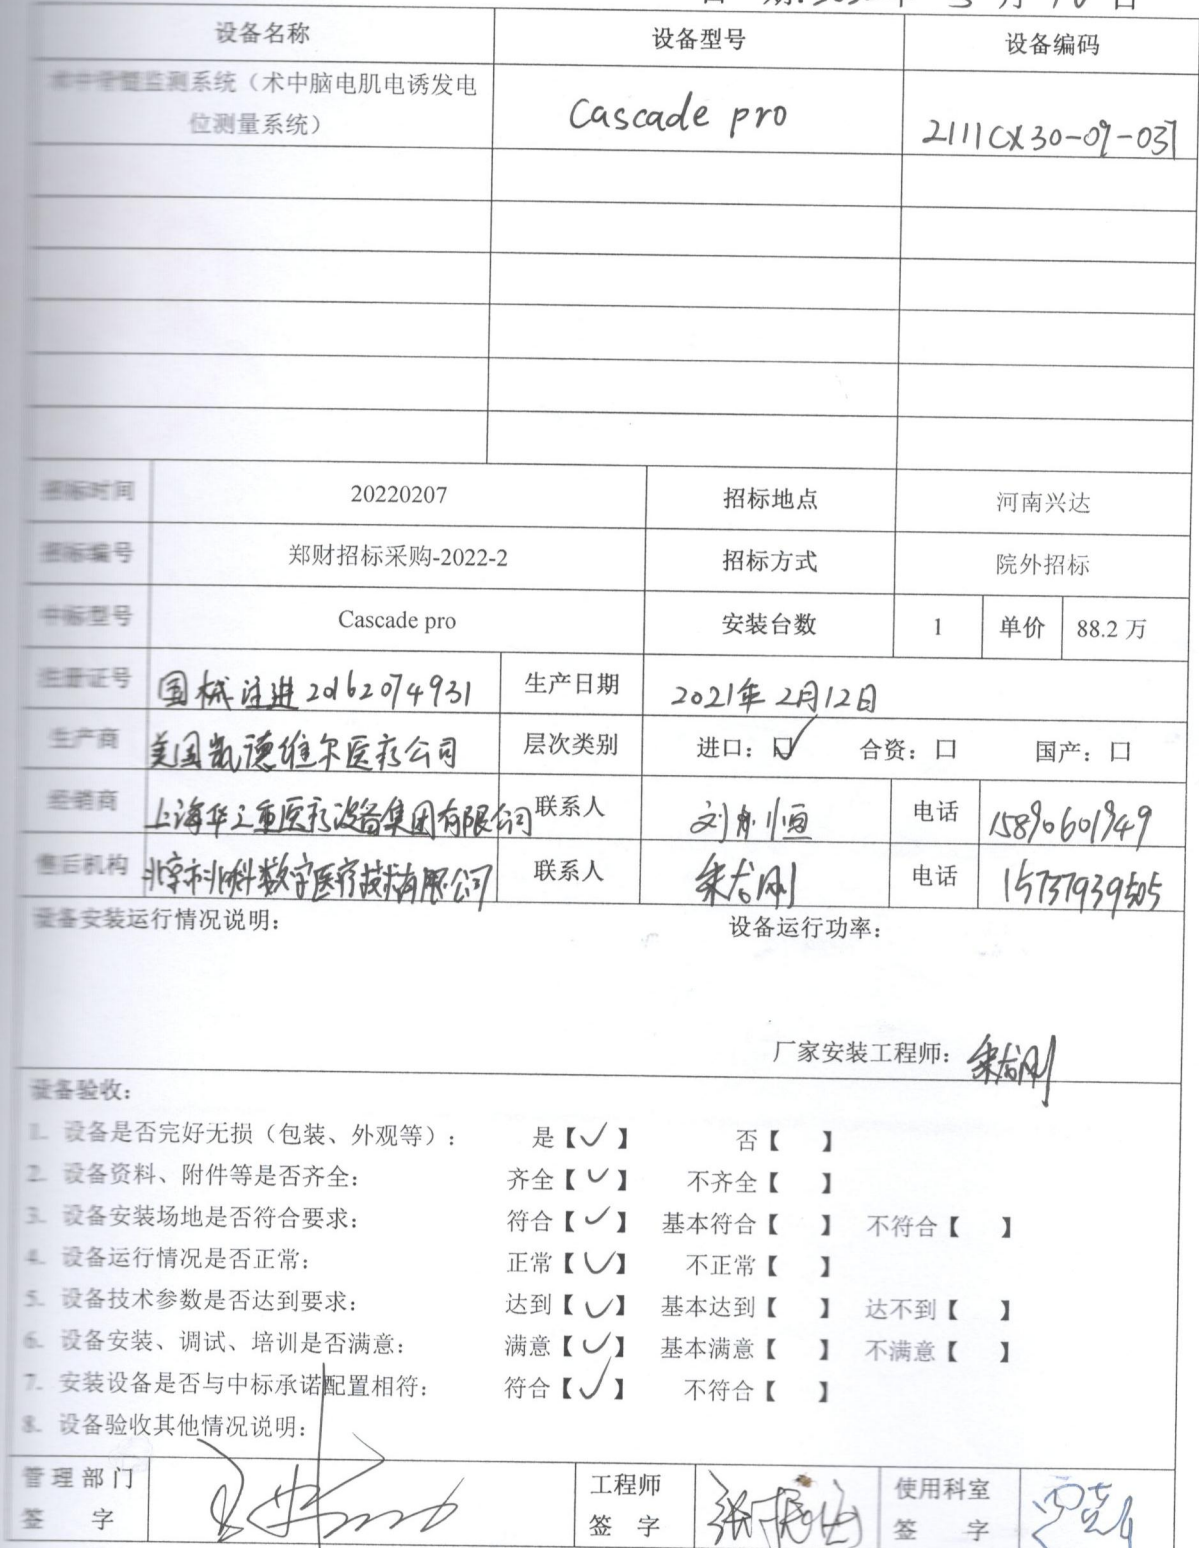 设备名称 设备型号 设备编码
术中脊髓监测系统（术中脑电肌电诱发电 Cascade pro 2111CX30-09-037
位测量系统）
招标时间 20220207 招标地点 河南兴达
招标编号 郑财招标采购-2022-2 招标方式 院外招标
中标型号 Cascade pro 安装台数 1 单价 88.2 万
注册证号 国械注进20162074931 生产日期 2021年2月12日
生产商 美国凯德维尔医疗公司 层次类别 进口：☑ 合资：口 国产：口
经销商 医疗设备集团有限公司 联系人 电话 15890601949
售后机构 数字医疗技术有限公司 联系人 电话 15737939505
设备安装运行情况说明： 设备运行功率：
厂家安装工程师：
设备验收：
1. 设备是否完好无损（包装、外观等）： 是【✓】 否【 】
2. 设备资料、附件等是否齐全： 齐全【✓】 不齐全【 】
3. 设备安装场地是否符合要求： 符合【✓】 基本符合【 】 不符合【 】
4. 设备运行情况是否正常： 正常【✓】 不正常【 】
5. 设备技术参数是否达到要求： 达到【✓】 基本达到【 】 达不到【 】
6. 设备安装、调试、培训是否满意： 满意【✓】 基本满意【 】 不满意【 】
7. 安装设备是否与中标承诺配置相符： 符合【✓】 不符合【 】
8. 设备验收其他情况说明：
管理部门 工程师 使用科室
签 字 签 字 签 字